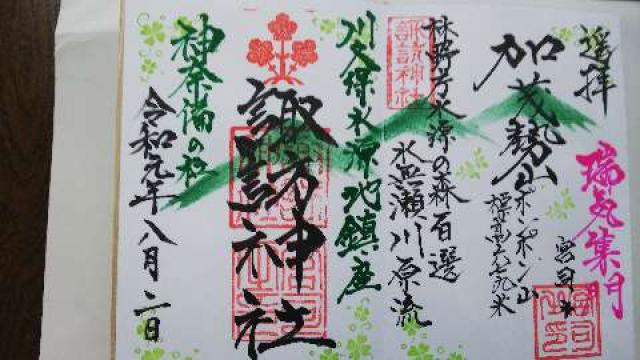 遥拝
瑞気集門
加茂勢山
ポンポン山
標高六七九米
林野庁水源の森百選
水無瀬川源流
諏訪神社
川久保水源地鎮座
諏訪神社
神奈備の杜
令和元年八月二日